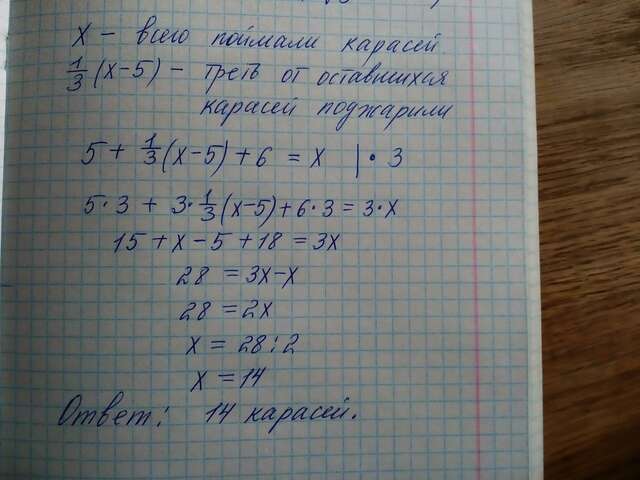 х – всего поймали карасей
1/3 (х–5) – треть от оставшихся
карасей поджарили
5 + 1/3 (х–5) + 6 = х | · 3
5·3 + 3·1/3 (х–5) + 6·3 = 3·х
15 + х – 5 + 18 = 3х
28 = 3х–х
28 = 2х
х = 28:2
х = 14
Ответ: 14 карасей.